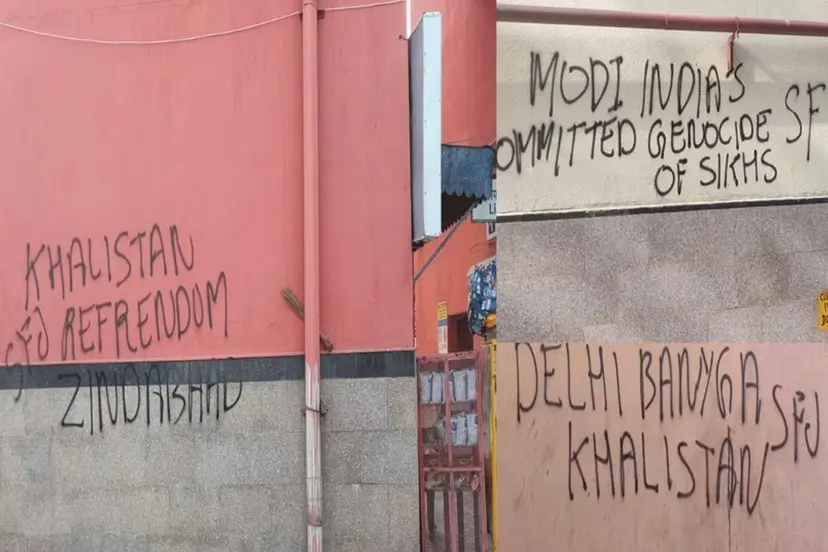 KHALISTAN
SFJ REFRENDUM
ZINDABAAD
MODI INDIA'S
OMMITTED GENOCIDE SF
OF SIKHS
DELHI BANYGA
SFJ
KHALISTAN